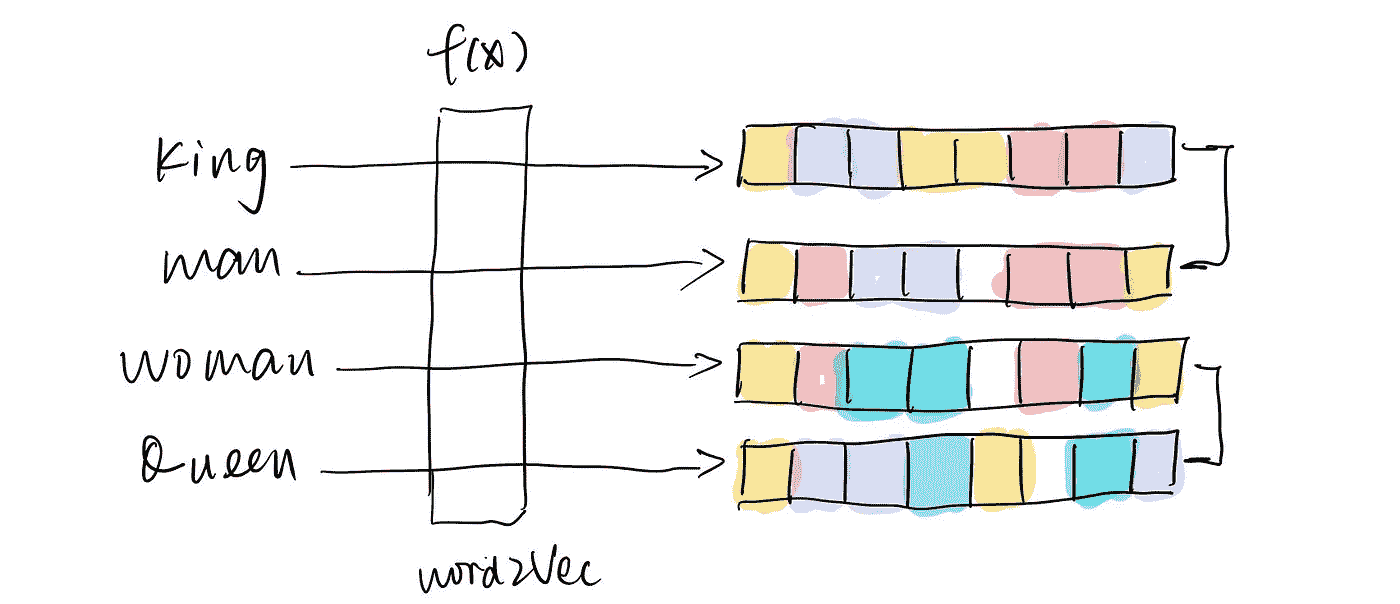 f(x)
King
man
woman
Queen
word2Vec